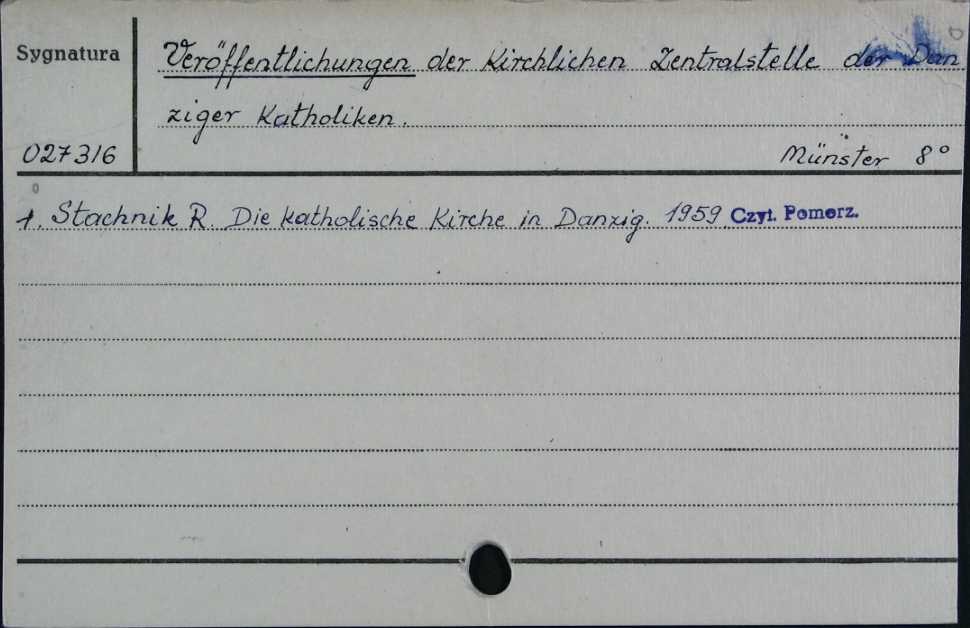 Sygnatura
Veröffentlichungen der Kirchlichen Zentralstelle der Dan
ziger Katholiken.
027316
Münster 8°
1. Stachnik R. Die katholische Kirche in Danzig. 1959. Czyt. Pomorz.